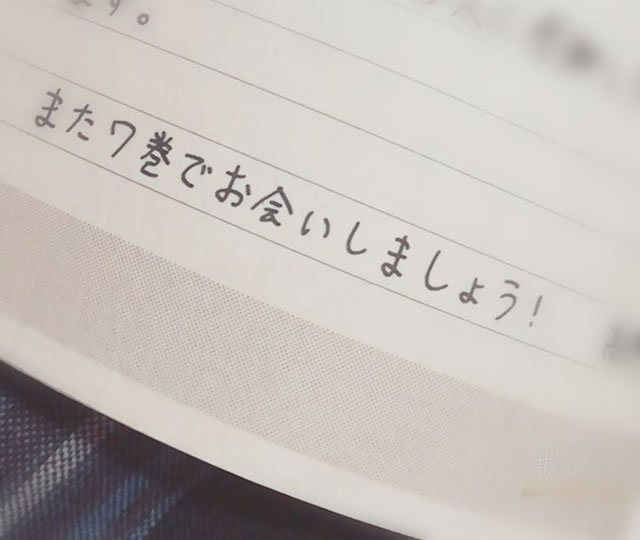 ます。
また7巻でお会いしましょう!